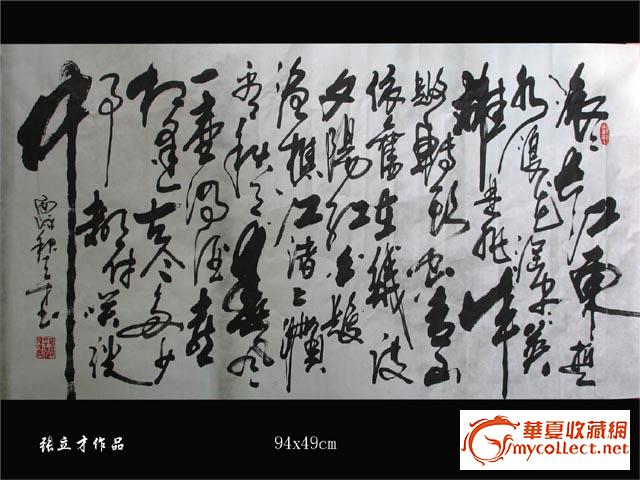 滚〻长江東逝
水浪花淘尽英
雄是非成
敗轉頭空青山
依舊在幾度
夕陽红白髮
渔樵江渚上惯
看秋月春风
一壶浊酒喜
相逢古今多少
事都付笑谈
中
秋立才书
张立才作品
94x49cm
華夏收藏網
mycollect.net